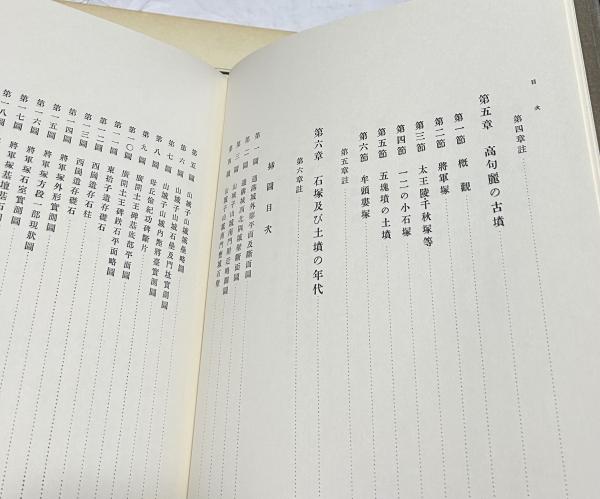 目次
第四章註
第五章 高句麗の古墳
第一節 概觀
第二節 將軍塚
第三節 太王陵千秋塚等
第四節 一二の小石塚
第五節 五塊墳の土墳
第六節 牟頭婁塚
第五章註
第六章 石塚及び土墳の年代
第六章註
挿圖目次
第一圖 通溝城外廓平面及斷面圖
第二圖 通溝城西北隅城壁斷面圖
第三圖 山城子山城南門附近略圖
第四圖 山城子山城南門甕城石壘
第五圖 山城子山城城壘略圖
第六圖 山城子山城石壘及門址實測圖
第七圖 山城子山城內點將臺實測圖
第八圖 毋丘儉紀功碑斷片
第九圖 廣開土王碑基底部平面圖
第一〇圖 廣開土王碑趺石平面略圖
第一一圖 東抬子遺存礎石
第一二圖 西崗遺存礎石
第一三圖 西崗遺存石柱
第一四圖 將軍塚外形實測圖
第一五圖 將軍塚方墩一部現狀圖
第一六圖 將軍塚石室實測圖
第一七圖 將軍塚基壇基石圖
第一八圖